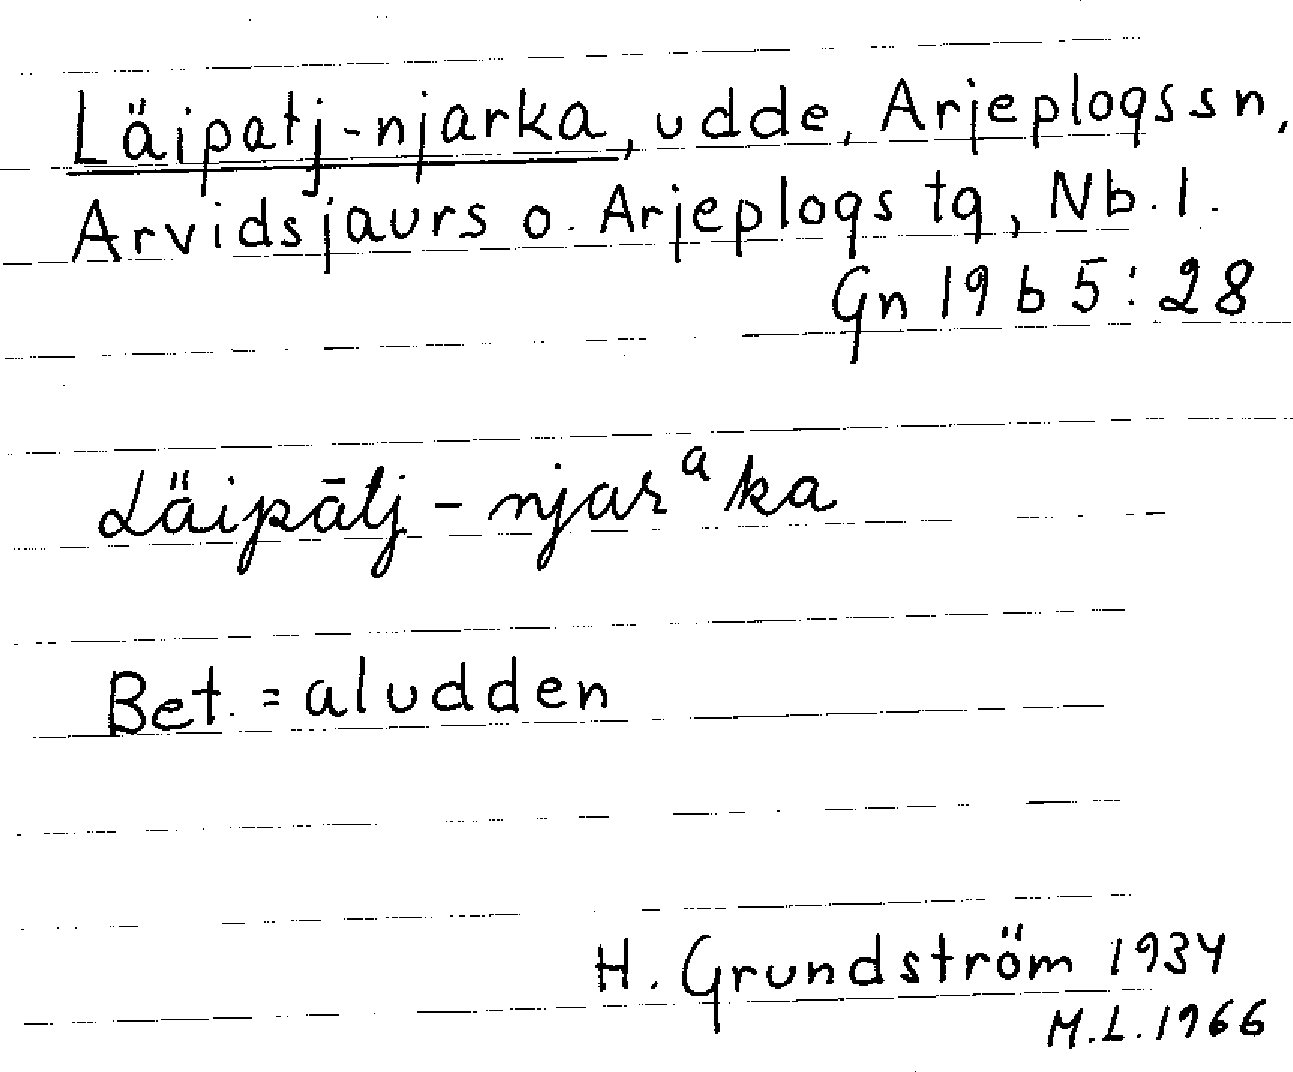 Läipatj-njarka, udde, Arjeplogs sn,
Arvidsjaurs o. Arjeplogs tg, Nb. l.
Gn 19 b 5:28
Läipātj - njarᵃka
Bet. = aludden
H. Grundström 1934
M.L. 1966